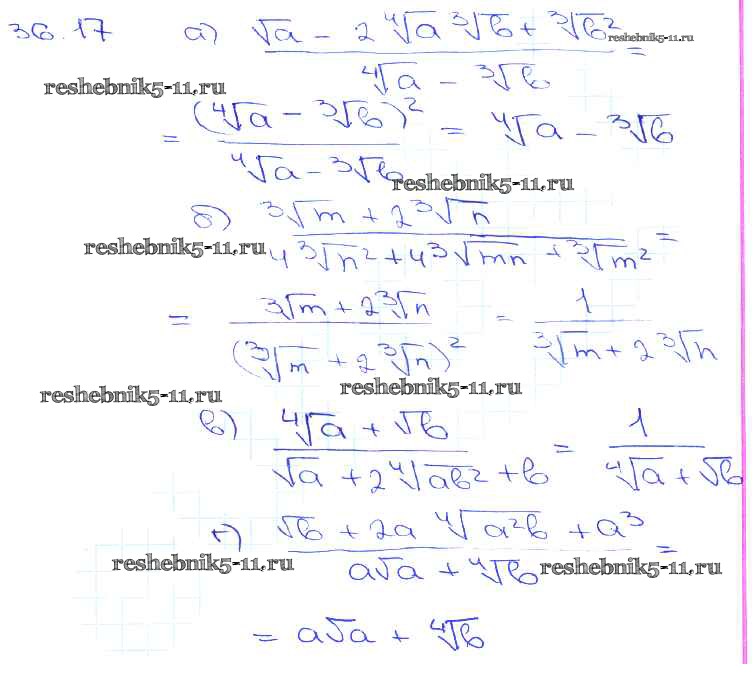 36.17 а) (√a − 2 ⁴√a ³√b + ³√b²) / (⁴√a − ³√b) =
reshebnik5-11.ru
reshebnik5-11.ru
= (⁴√a − ³√b)² / (⁴√a − ³√b) = ⁴√a − ³√b
reshebnik5-11.ru
б) (³√m + 2 ³√n) / (4 ³√n² + 4 ³√mn + ³√m²) =
reshebnik5-11.ru
= (³√m + 2 ³√n) / (³√m + 2 ³√n)² = 1 / (³√m + 2 ³√n)
reshebnik5-11.ru
reshebnik5-11.ru
в) (⁴√a + √b) / (√a + 2 ⁴√ab² + b) = 1 / (⁴√a + √b)
г) (√b + 2a ⁴√a²b + a³) / (a√a + ⁴√b) =
reshebnik5-11.ru
reshebnik5-11.ru
= a√a + ⁴√b